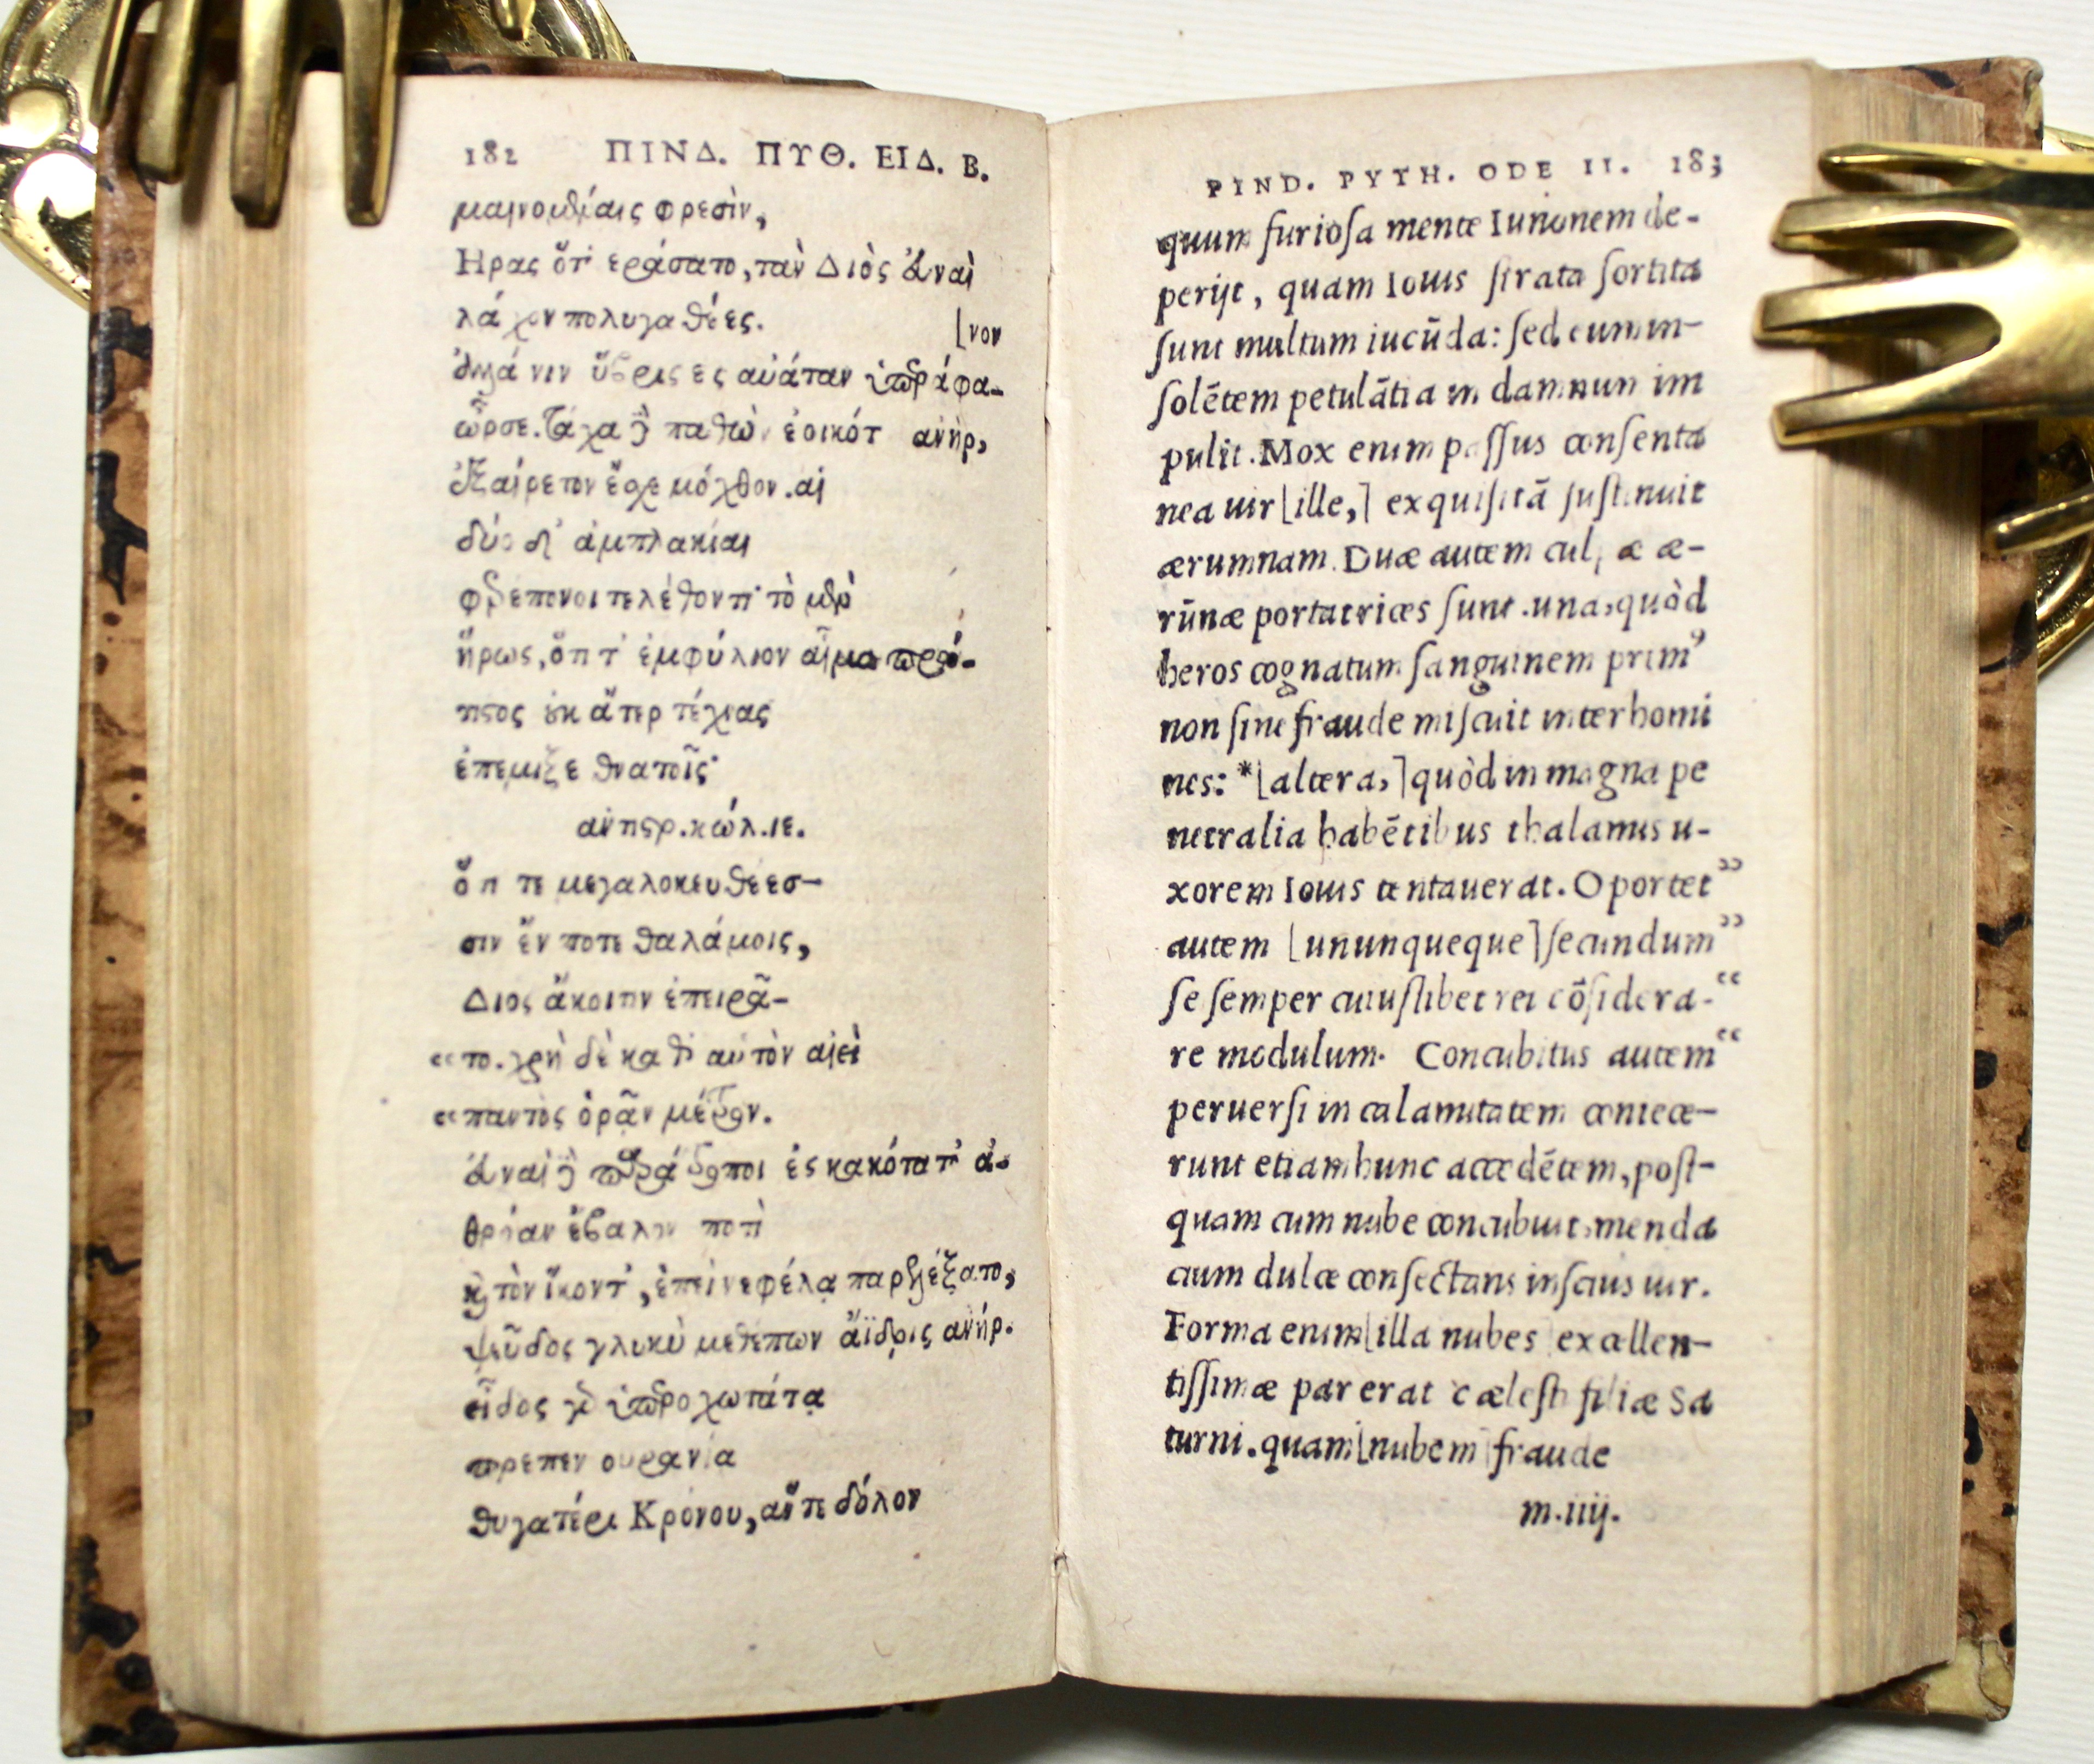 182 ΠΙΝΔ. ΠΥΘ. ΕΙΔ. Β.
μαινομέναις φρεσὶν,
Ηρας ὅτ' εράσατο, τὰν Διὸς ἐυναὶ
λάχον πολυγαθέες. [νον
ἀλλά νιν ὕβρις ες αὐάταν ὑπεράφα-
ὦρσε. τάχα δὲ παθὼν ἐοικότ ανὴρ,
ἐξαίρετον ἕλε μόχθον. αἱ
δύο δ' ἀμπλακίαι
φερέπονοι τελέθοντι· τὸ μὲν
ἥρως, ὅτι τ' ἐμφύλιον αἷμα πρώ-
τιστος οὐκ ἄτερ τέχνας
ἐπέμιξε θνατοῖς·
αντιστρ. κώλ. ιε.
ὅτι τε μεγαλοκευθέεσ-
σιν ἔν ποτε θαλάμοις,
Διος ἄκοιτιν ἐπειρᾶ-
“το. χρὴ δὲ κατ' αὐτὸν αἰεὶ
“παντὸς ὁρᾷν μέτρον.
ἐυναὶ δὲ παράτροποι ἐς κακότατ' ἀ-
θρόαν ἔβαλον ποτὶ
καὶ τὸν ἵκοντ', ἐπεὶ νεφέλᾳ παρελέξατο,
ψεῦδος γλυκὺ μεθέπων ἄϊδρις ανήρ.
εἶδος γὰρ ὑπεροχωτάτᾳ
πρέπεν ουρανίᾳ
θυγατέρι Κρόνου, ἅντε δόλον
PIND. PYTH. ODE II. 183
quum furiosa mente Iunonem de-
perijt, quam Iouis strata sortita
sunt multum iucūda: sed eum in-
solētem petulātia in damnum im
pulit. Mox enim passus consenta
nea uir [ille,] exquisitā sustinuit
ærumnam. Duæ autem culpæ æ-
rūnæ portatrices sunt. una, quòd
heros cognatum sanguinem prim⁹
non sine fraude miscuit inter homi
nes: *[altera,] quòd in magna pe
netralia habētibus thalamis u-
xorem Iouis tentauerat. Oportet ”
autem [ununquemque] secundum ”
se semper cuiuslibet rei cōsidera- “
re modulum. Concubitus autem “
peruersi in calamitatem coniece-
runt etiam hunc accedētem, post-
quam cum nube concubuit, menda
cium dulce consectans inscius uir.
Forma enim [illa nubes] excellen-
tissimæ par erat cælesti filiæ Sa
turni. quam [nubem] fraude
m.iiij.